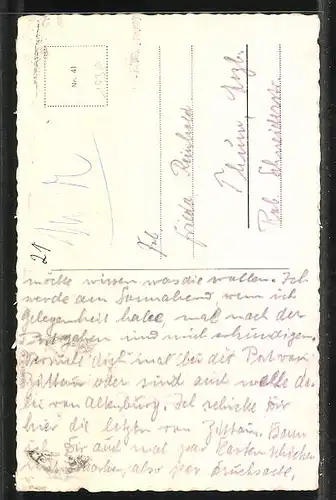 Nr. 41
21
Frl.
Frieda Reinhold
Thum, Erzgb.
Rob. Schneiderstr.
möchte wissen was die wollen. Ich
werde am Sonnabend wenn ich
Gelegenheit habe, mal nach der
Post gehen und mich erkundigen.
dich mal bei dir Post von
Zittau oder sind auch welche da-
bei von Altenburg. Ich schicke dir
hier die letzten von Zittau. Dann
ich dir auch mal paar Karten schicken
also per Drucksache.